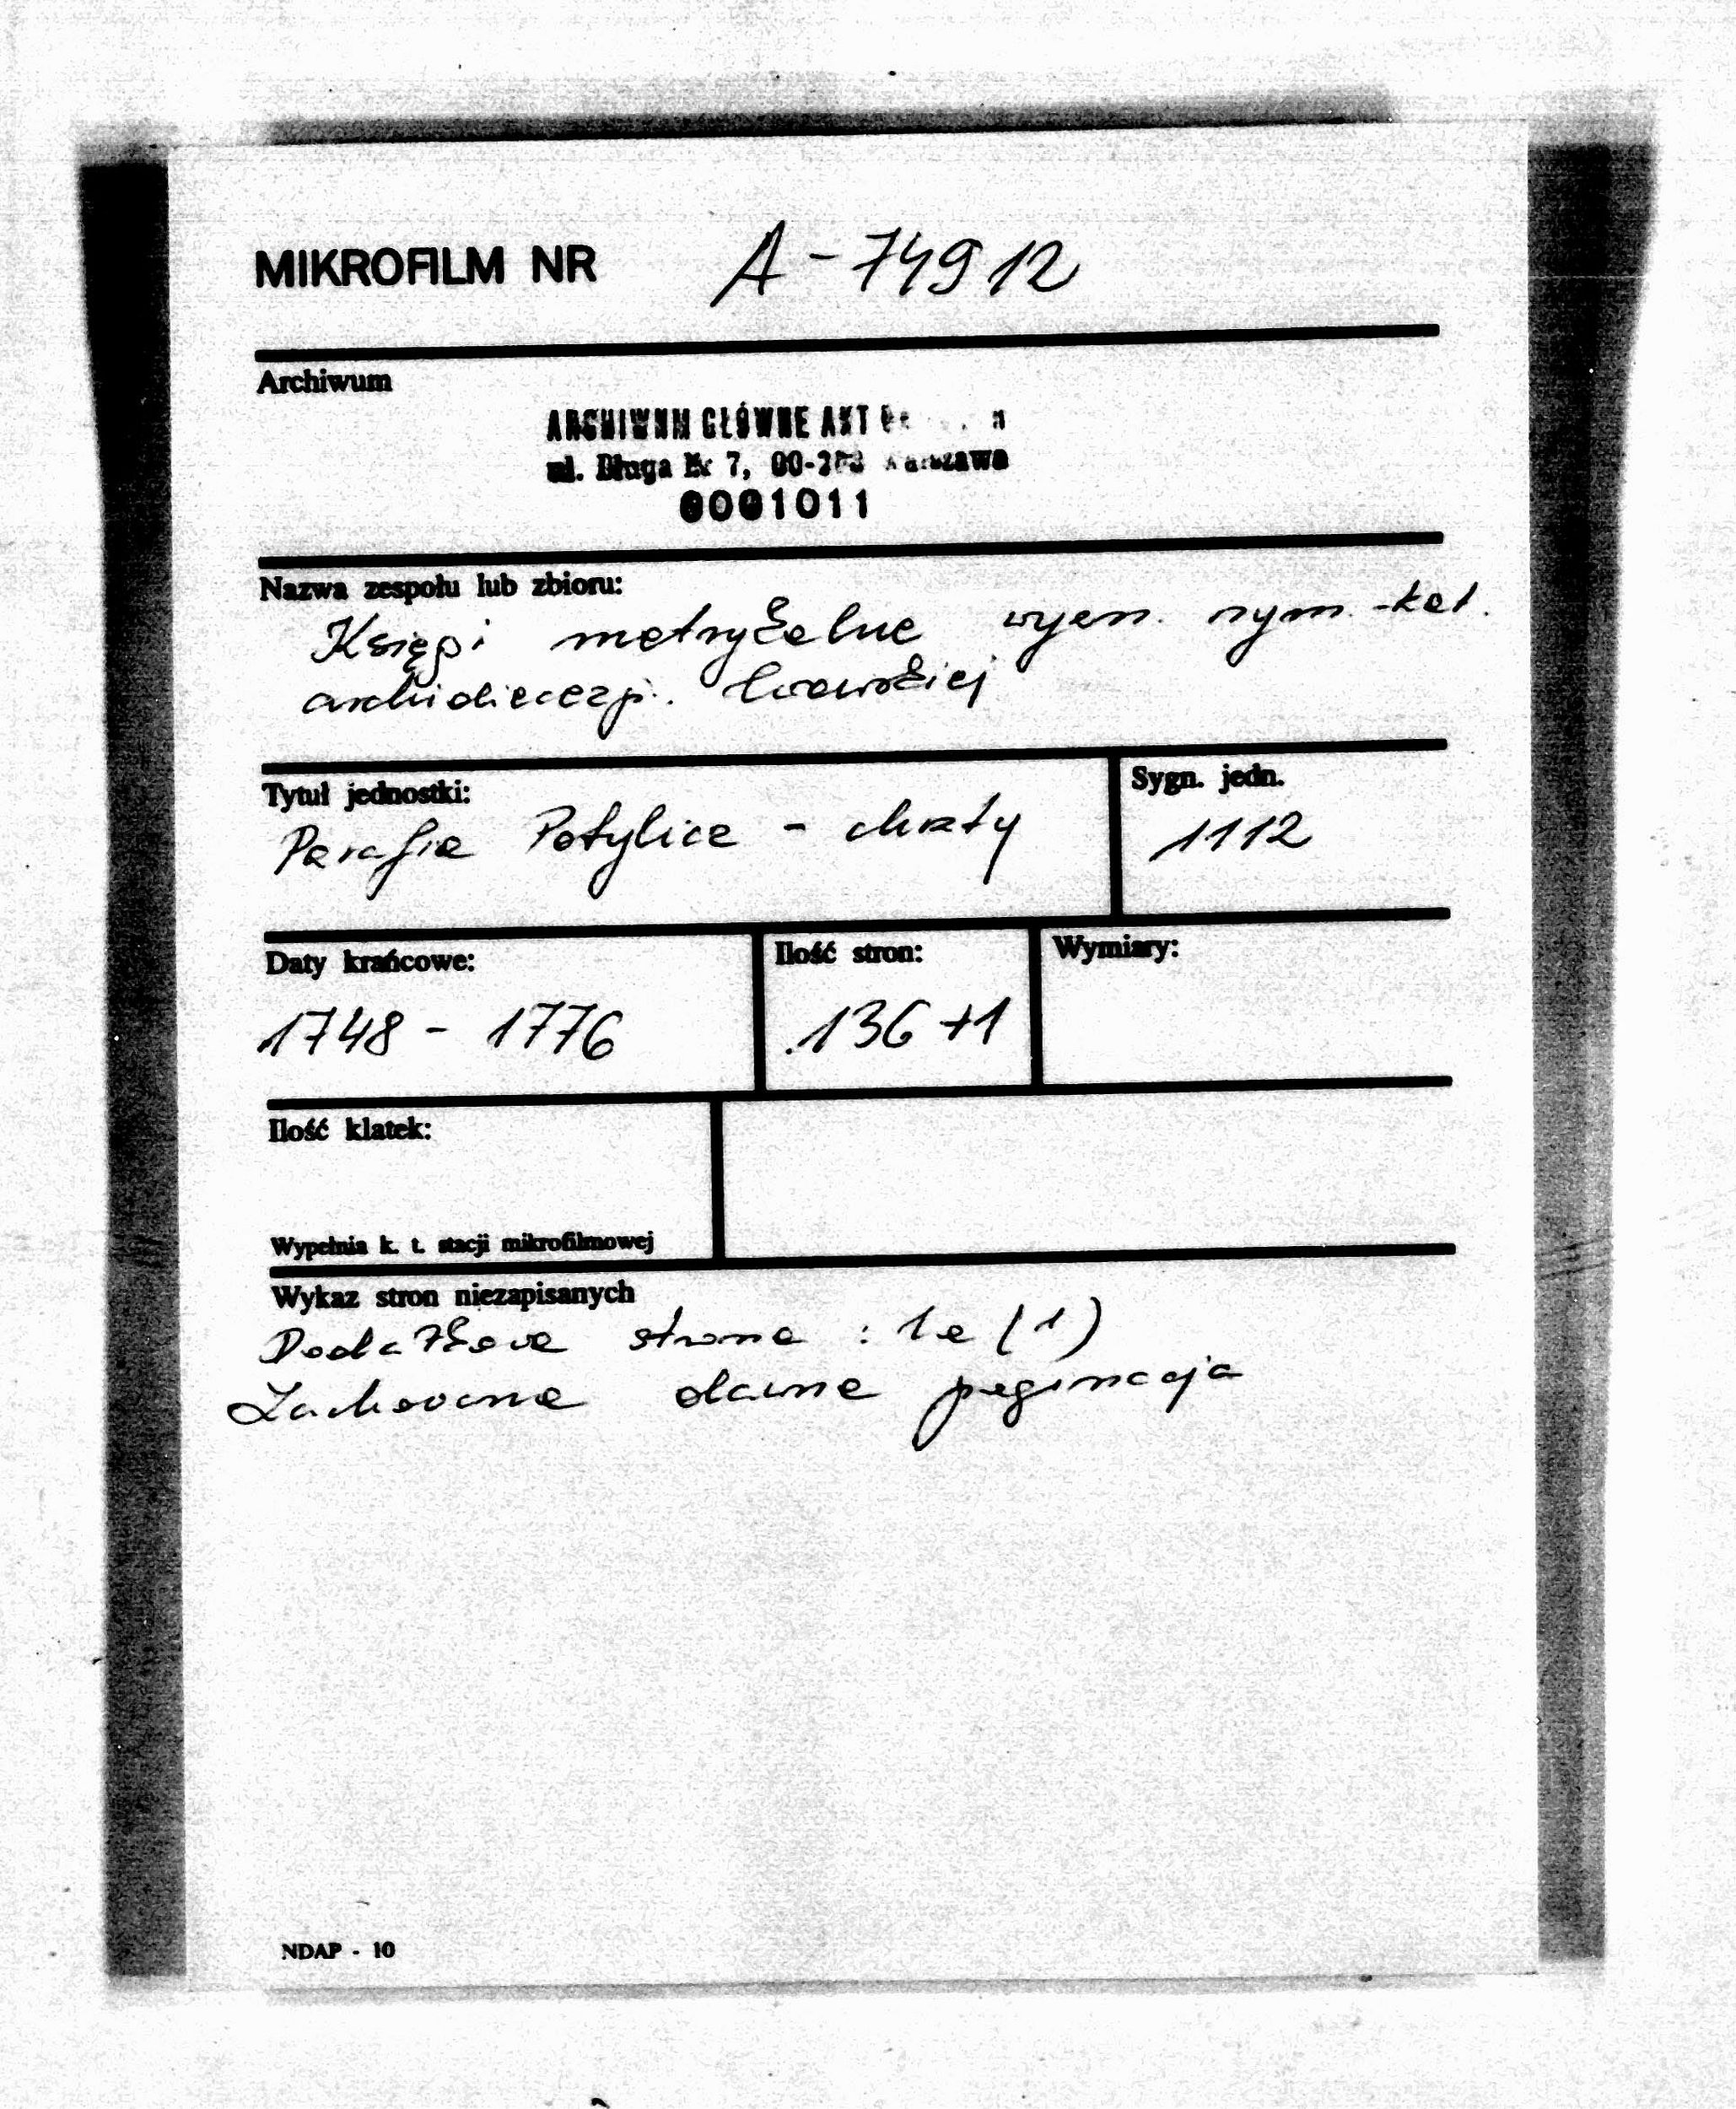 MIKROFILM NR A-74912
Archiwum
ARCHIWUM GŁÓWNE AKT
ul. Długa Nr 7, 00-263 Warszawa
0001011
Nazwa zespołu lub zbioru:
Księgi metrykalne wyzn. rzym.-kat.
archidiecezji lwowskiej
Tytuł jednostki:
Sygn. jedn.
Parafia Potylicz - chrzty
1112
Daty krańcowe:
Ilość stron:
Wymiary:
1748 - 1776
136+1
Ilość klatek:
Wypełnia k. t. stacji mikrofilmowej
Wykaz stron niezapisanych
Dodatkowa strona : 1a (1)
Zachowana dawna paginacja
NDAP - 10